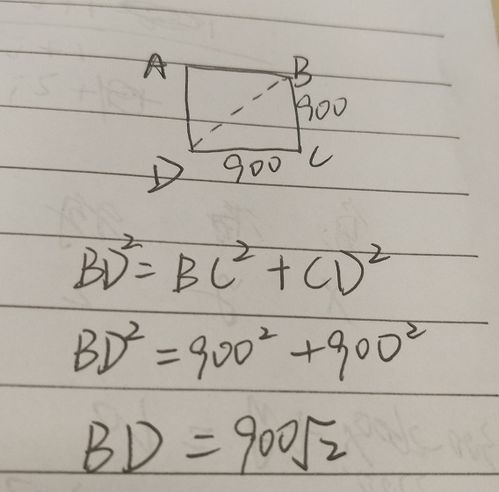 A B
900
D 900 C
BD² = BC² + CD²
BD² = 900² + 900²
BD = 900√2